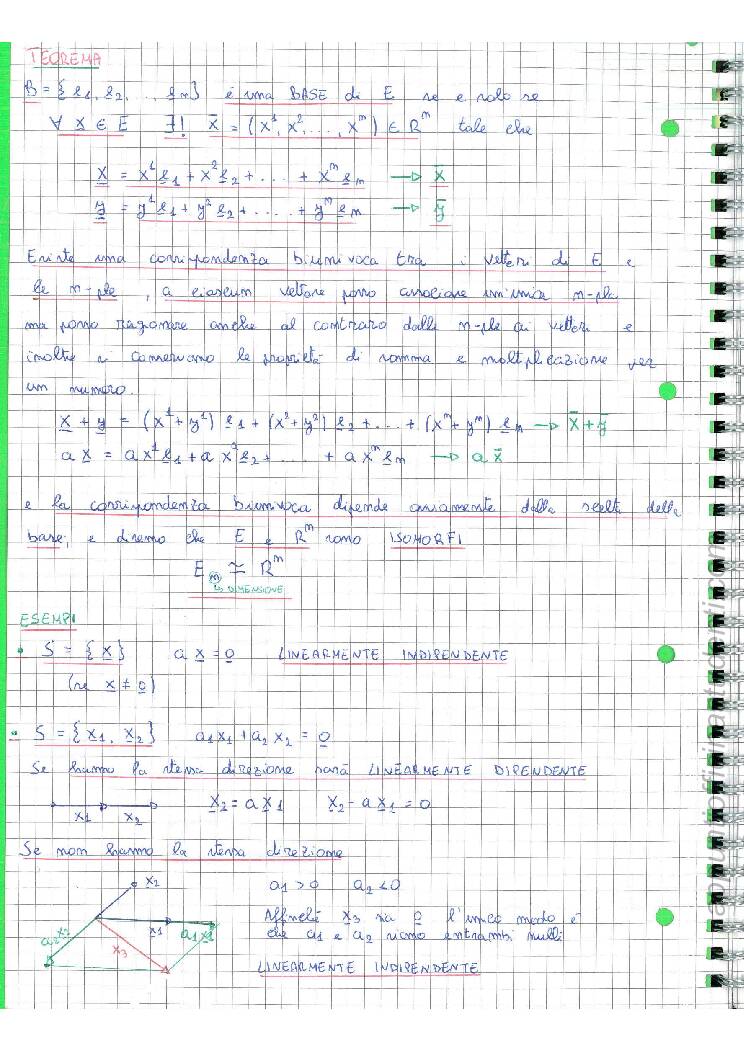 TEOREMA
B = {e1, e2, .., em} è una BASE di E se e solo se
∀ x ∈ E ∃! x̄ = (x¹, x², ..., xᵐ) ∈ Rᵐ tale che
x = x¹e1 + x²e2 + .... + xᵐem → x̄
y = y¹e1 + y²e2 + ..... + yᵐem → ȳ
Esiste una corrispondenza biunivoca tra i vettori di E e
le m-ple, a ciascun vettore posso associare un'unica m-pla
ma posso ragionare anche al contraro dalle m-ple ai vettori e
inoltre si conservano le proprietà di somma e moltiplicazione per
un numero.
x + y = (x¹+y¹) e1 + (x²+y²) e2 + ... + (xᵐ+yᵐ) em → x̄+ȳ
a x = a x¹e1 + a x²e2 + ..... + a xᵐem → a x̄
e la corrispondenza biunivoca dipende ovviamente dalla scelta della
base, e diremo che E e Rᵐ sono ISOMORFI
Em ≅ Rᵐ
↳ DIMENSIONE
ESEMPI
• S = {x} a x = 0 LINEARMENTE INDIPENDENTE
(se x ≠ 0)
• S = {x1, x2} a1x1 + a2x2 = 0
Se hanno la stessa direzione sarà LINEARMENTE DIPENDENTE
x1 x2 x2 = a x1 x2 - a x1 = 0
Se non hanno la stessa direzione
x2 a1 > 0 a2 < 0
x1 a1x1 Affinchè x3 sia 0 l'unico modo è
a2x2 x3 che a1 e a2 siano entrambi nulli
LINEARMENTE INDIPENDENTE
appuntiofficinastudenti.com